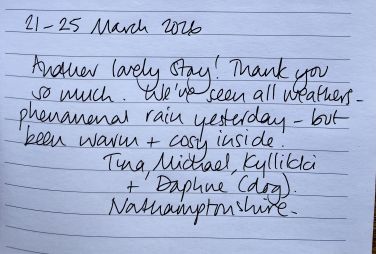 21-25 March 2026
Another lovely stay! Thank you
so much. We've seen all weathers -
phenomenal rain yesterday - but
been warm + cosy inside.
Tina, Michael, Kyllikki
+ Daphne (dog).
Northamptonshire.